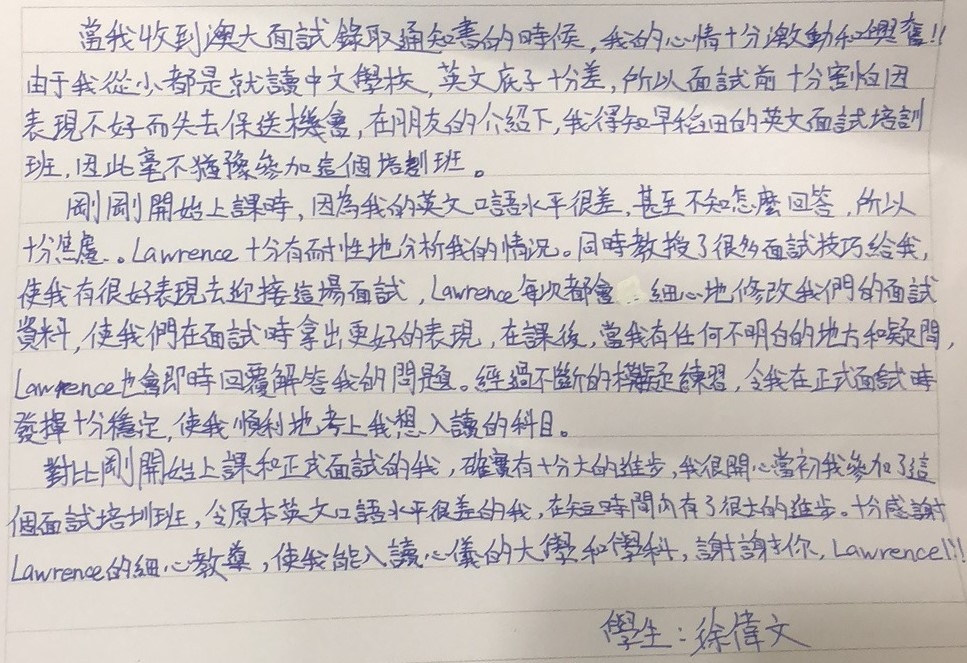 當我收到澳大面試錄取通知書的時候，我的心情十分激動和興奮!!
由于我從小都是就讀中文學校，英文底子十分差，所以面試前十分害怕因
表現不好而失去保送機會，在朋友的介紹下，我得知早稻田的英文面試培訓
班，因此毫不猶豫參加這個培訓班。
剛剛開始上課時，因為我的英文口語水平很差，甚至不知怎麼回答，所以
十分焦慮。Lawrence十分有耐性地分析我的情況。同時教授了很多面試技巧給我，
使我有很好表現去迎接這場面試，Lawrence每次都會細心地修改我們的面試
資料，使我們在面試時拿出更好的表現，在課後，當我有任何不明白的地方和疑問，
Lawrence也會即時回覆解答我的問題。經過不斷的模擬練習，令我在正式面試時
發揮十分穩定，使我順利地考上我想入讀的科目。
對比剛開始上課和正式面試的我，確實有十分大的進步，我很開心當初我參加了這
個面試培訓班，令原本英文口語水平很差的我，在短時間內有了很大的進步。十分感謝
Lawrence的細心教導，使我能入讀心儀的大學和學科，謝謝你，Lawrence!!!
學生：徐偉文